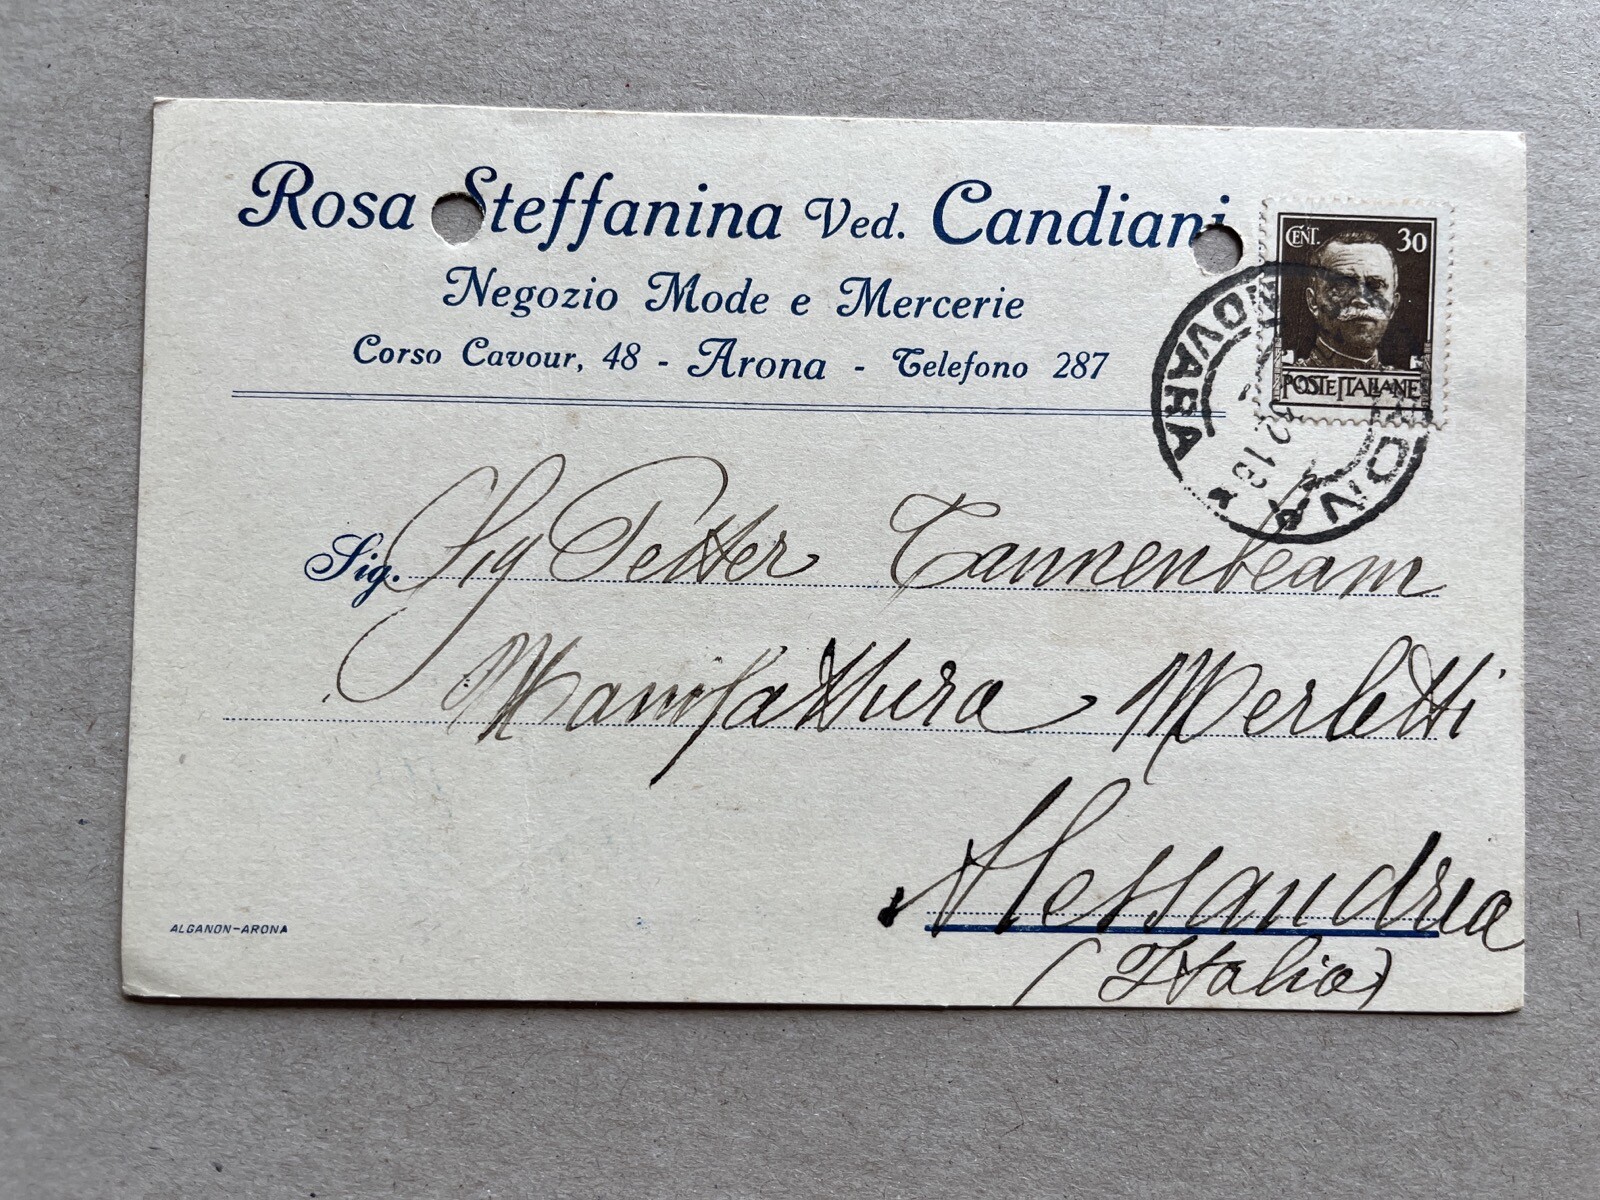 Rosa Steffanina Ved. Candiani
Negozio Mode e Mercerie
Corso Cavour, 48 - Arona - Telefono 287
CENT. 30
POSTE ITALIANE
NOVARA
Sig. Sig Petter Tannenbeam
Manifatthura Merletti
Alessandria
(Italia)
ALGANON-ARONA